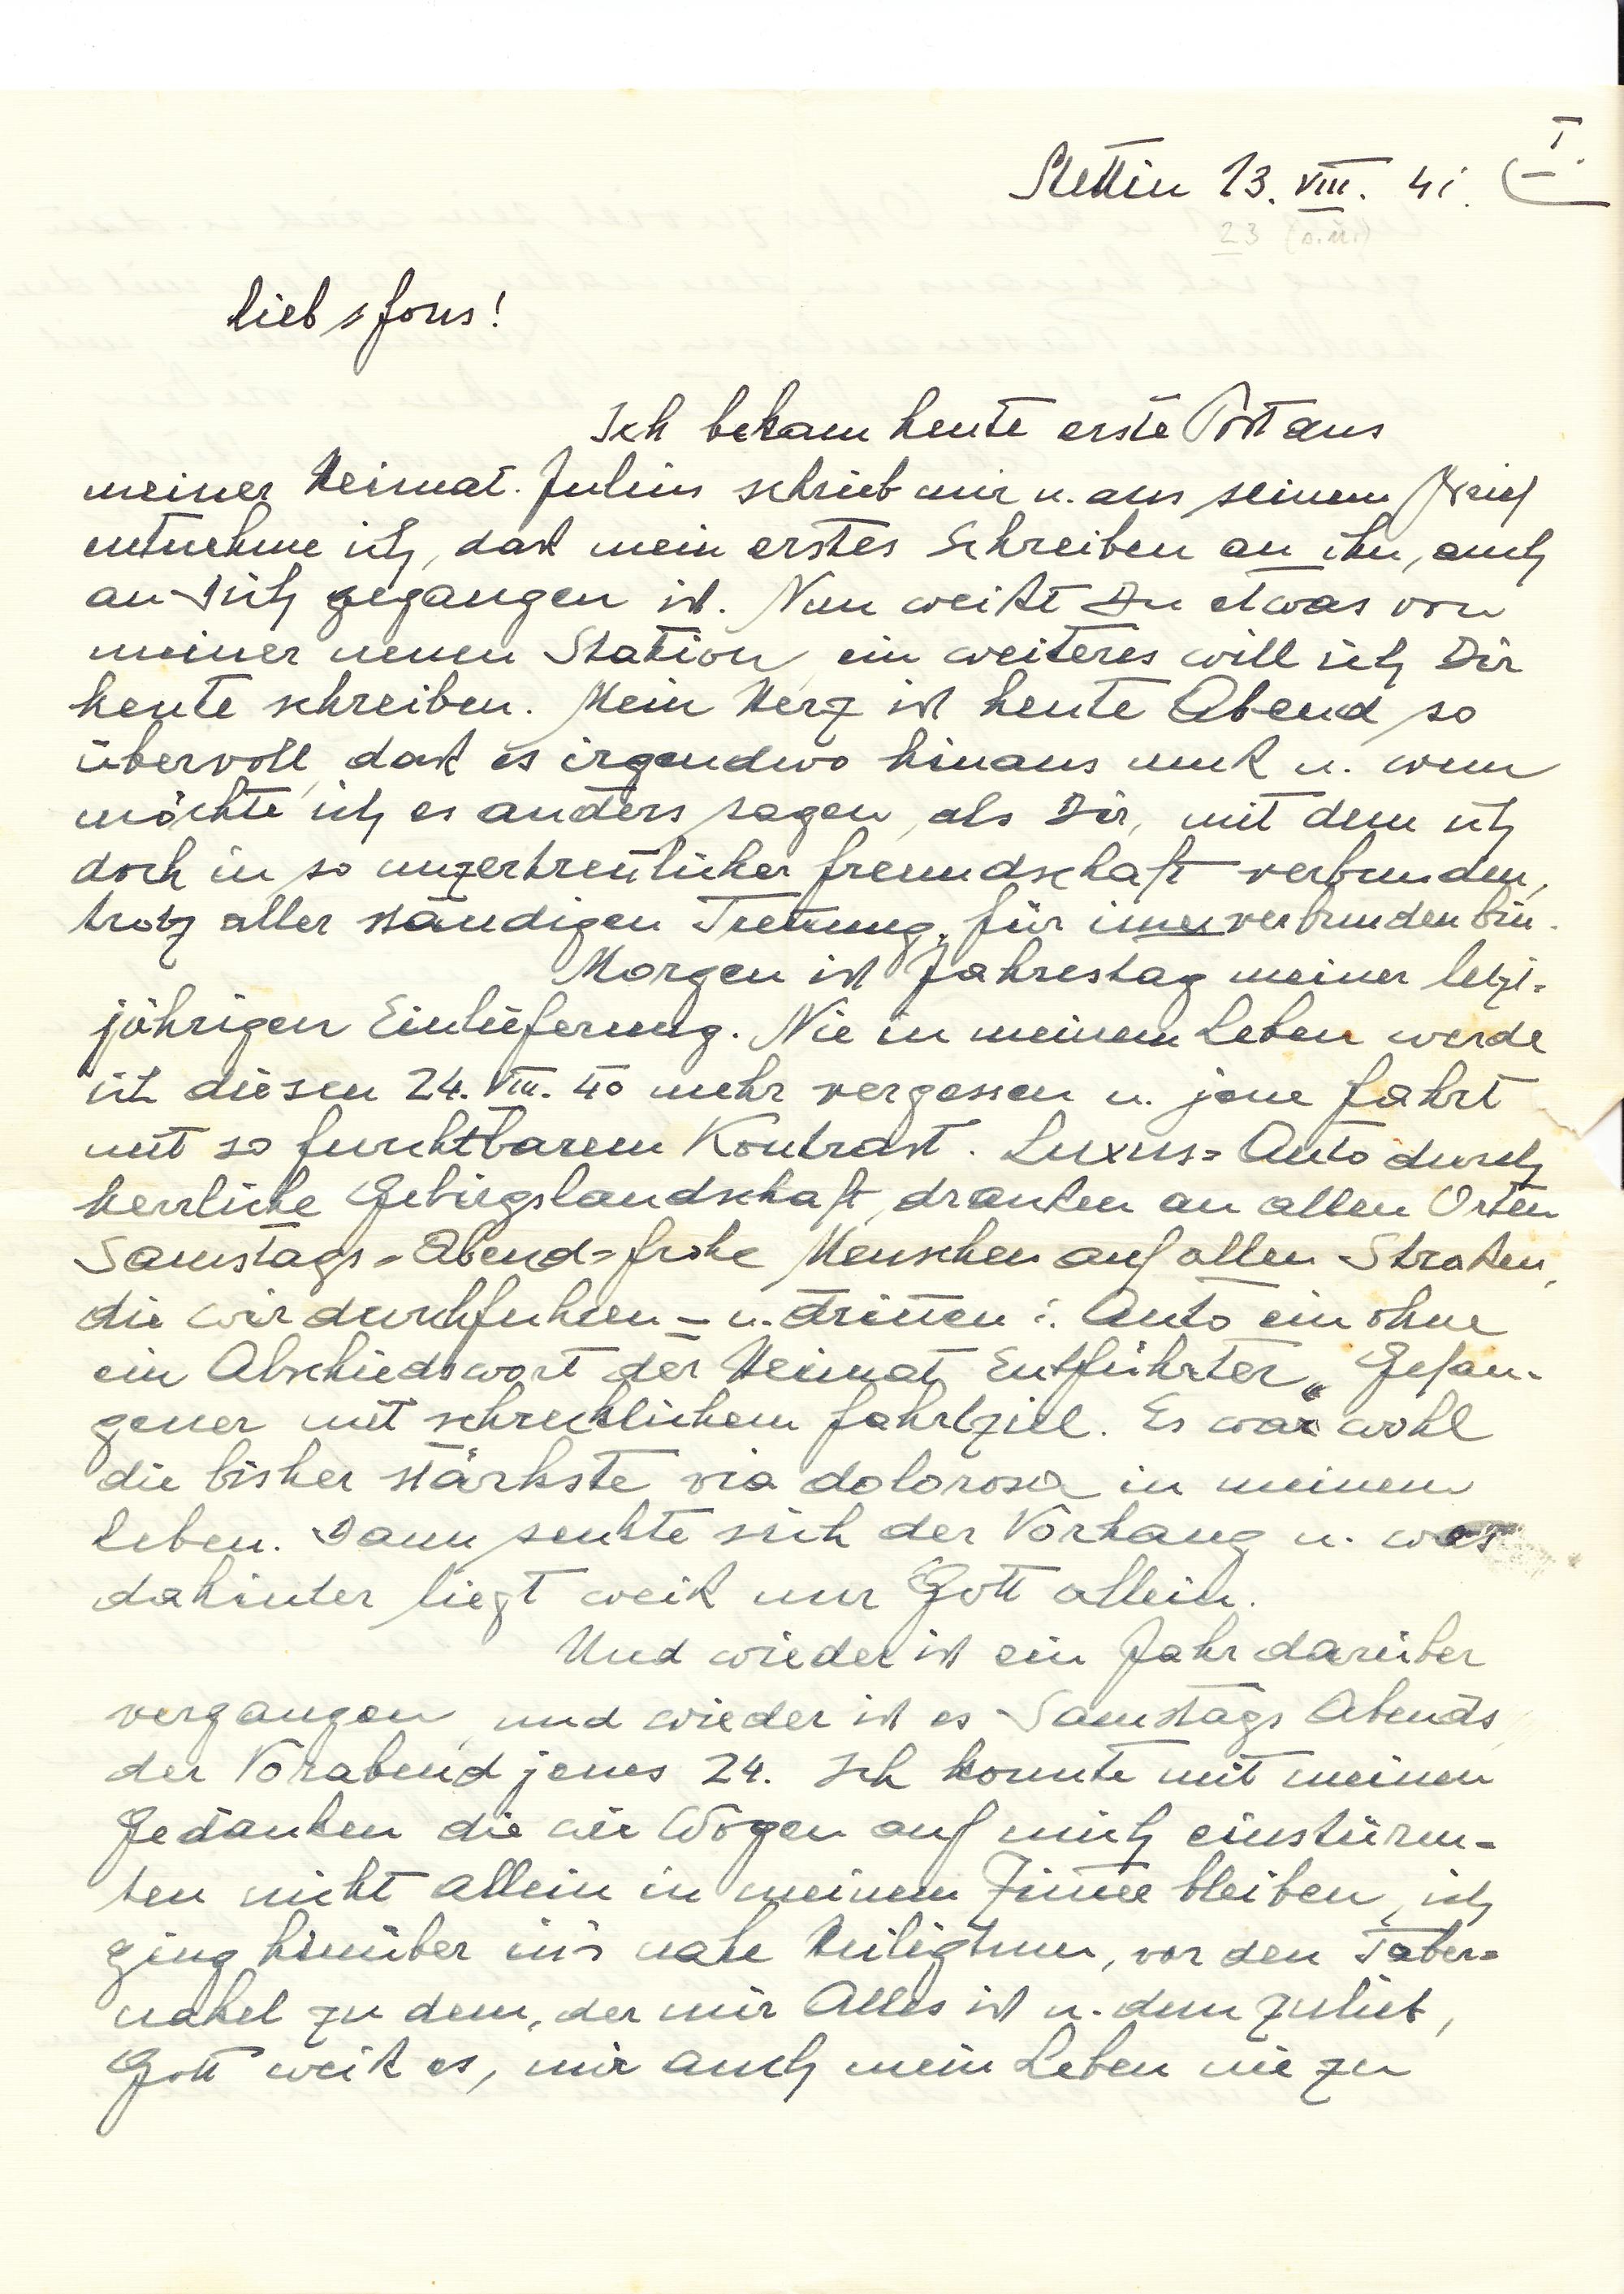 Stettin 13. VIII. 41. I.
23 (s.u.)
Lieb's fons!
Ich bekam heute erste Post aus
meiner Heimat. Julius schrieb mir u. aus seinem Brief
entnehme ich, daß mein erstes Schreiben an ihn, auch
an Dich gegangen ist. Nun weißt Du etwas von
meiner neuen Station, ein weiteres will ich Dir
heute schreiben. Mein Herz ist heute Abend so
übervoll, daß es irgendwo hinaus muß u. wem
möchte ich es anders sagen, als Dir, mit dem ich
doch in so unzertren̄licher Freundschaft verbunden,
trotz aller ständigen Tren̄ung, für im̄er verbunden bin.
Morgen ist Jahrestag meiner letzt-
jährigen Einlieferung. Nie in meinem Leben werde
ich diesen 24. VIII. 40 mehr vergessen u. jene Fahrt
mit so furchtbarem Kontrast. Luxus=Auto durch
herrliche Gebirgslandschaft, draußen an allen Orten
Samstags=Abend=frohe Menschen auf allen Straßen,
die wir durchfuhren – u. drin̄en i. Auto ein ohne
ein Abschiedswort der Heimat Entführter, Gefan-
gener mit schrecklichem Fahrtziel. Es war wohl
die bisher stärkste via dolorosa in meinem
Leben. Dann senkte sich der Vorhang u. was
dahinter liegt weiß nur Gott allein.
Und wieder ist ein Jahr darüber
vergangen, und wieder ist es Samstags Abends,
der Vorabend jenes 24. Ich konnte mit meinen
Gedanken die wie Wogen auf mich einstürm-
ten nicht allein in meinem Zim̄er bleiben, ich
ging hinüber in's nahe Heiligtum, vor den Taber=
nakel zu dem, der mir Alles ist u. dem zulieb,
Gott weiß es, mir auch mein Leben nie zu